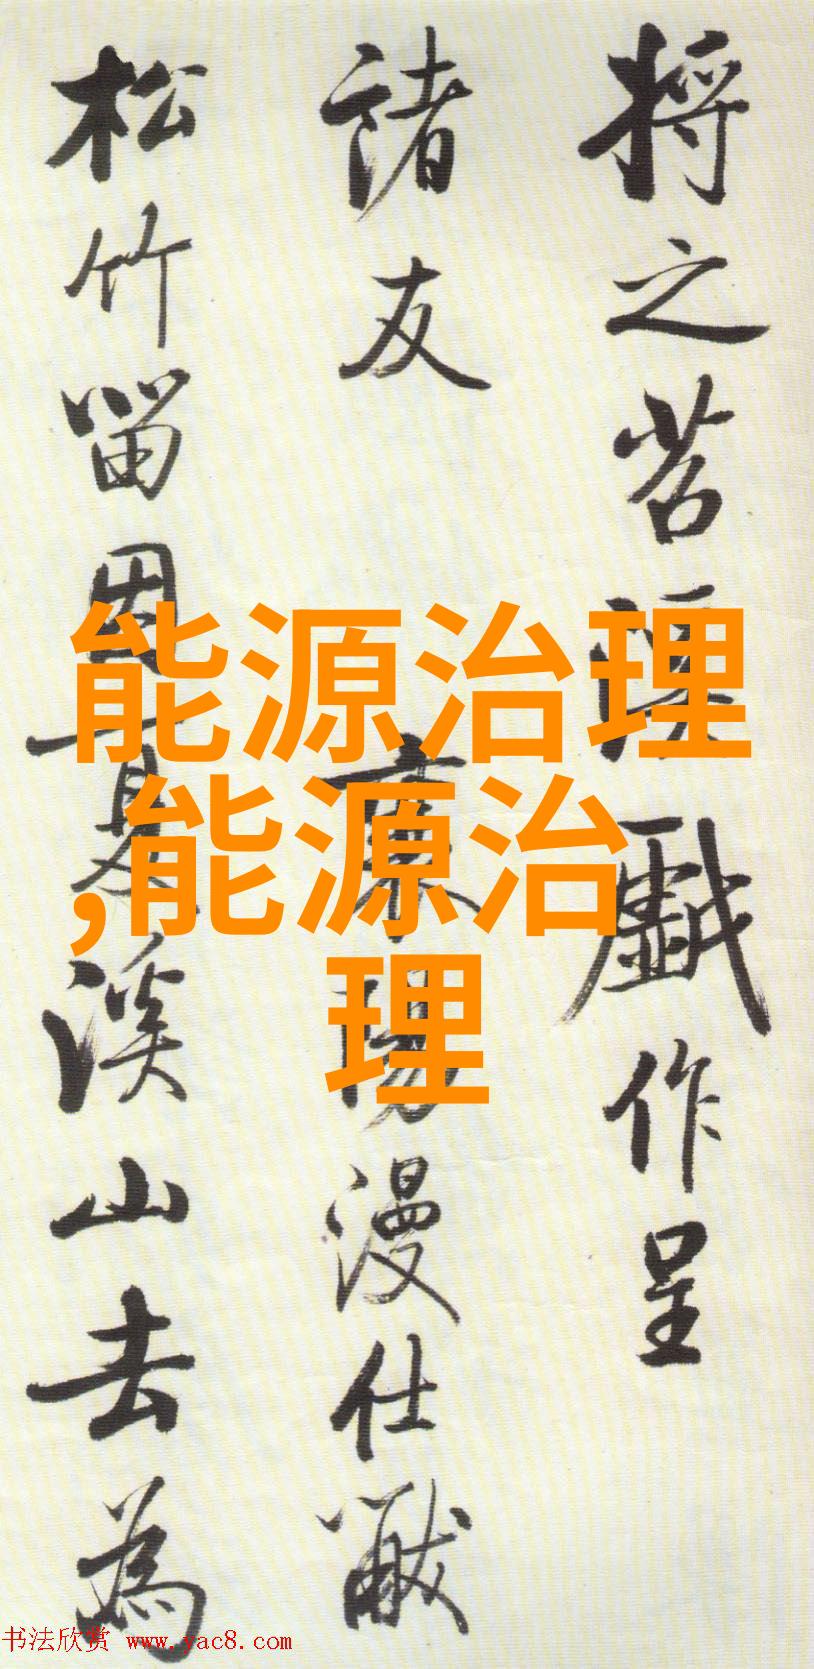 將之苕溪戲作呈
諸友
襄陽漫仕黻
松竹留因夏溪山去為
能源治理
,能源治
理
书法欣赏 www.yac8.com